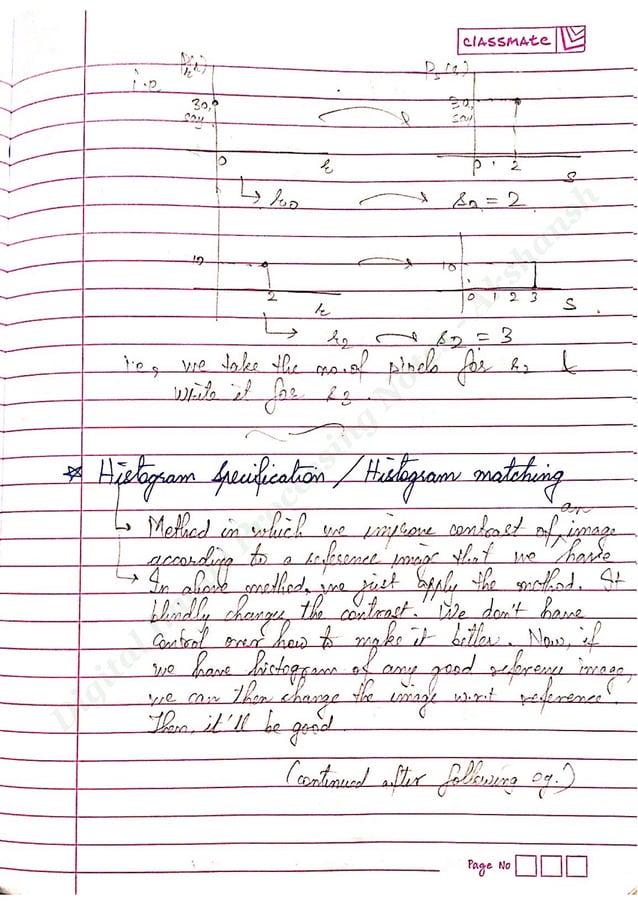 classmate
i.e
30, say
30, say
0
r
0 1 2
S
r0
s2 = 2
10
10
2
r
0 1 2 3
S
r2
s2 = 3
i.e, we take the no. of pixels for r2 &
write it for s3.
* Histogram specification / Histogram matching
Method in which we improve contrast of an image
according to a reference image that we have
In above method, we just apply the method. It
blindly change the contrast. We don't have
control over how to make it better. Now, if
we have histogram of any good reference image,
we can then change the image w.r.t reference.
Then, it'll be good.
(continued after following eg.)
Page No
Digital Image Processing Notes - Akshansh